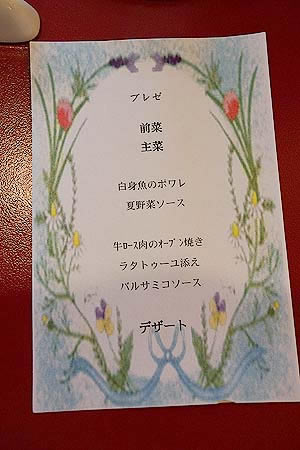 ブレゼ
前菜
主菜
白身魚のポワレ
夏野菜ソース
牛ﾛｰｽ肉のｵｰﾌﾞﾝ焼き
ラタトゥーユ添え
バルサミコソース
デザート